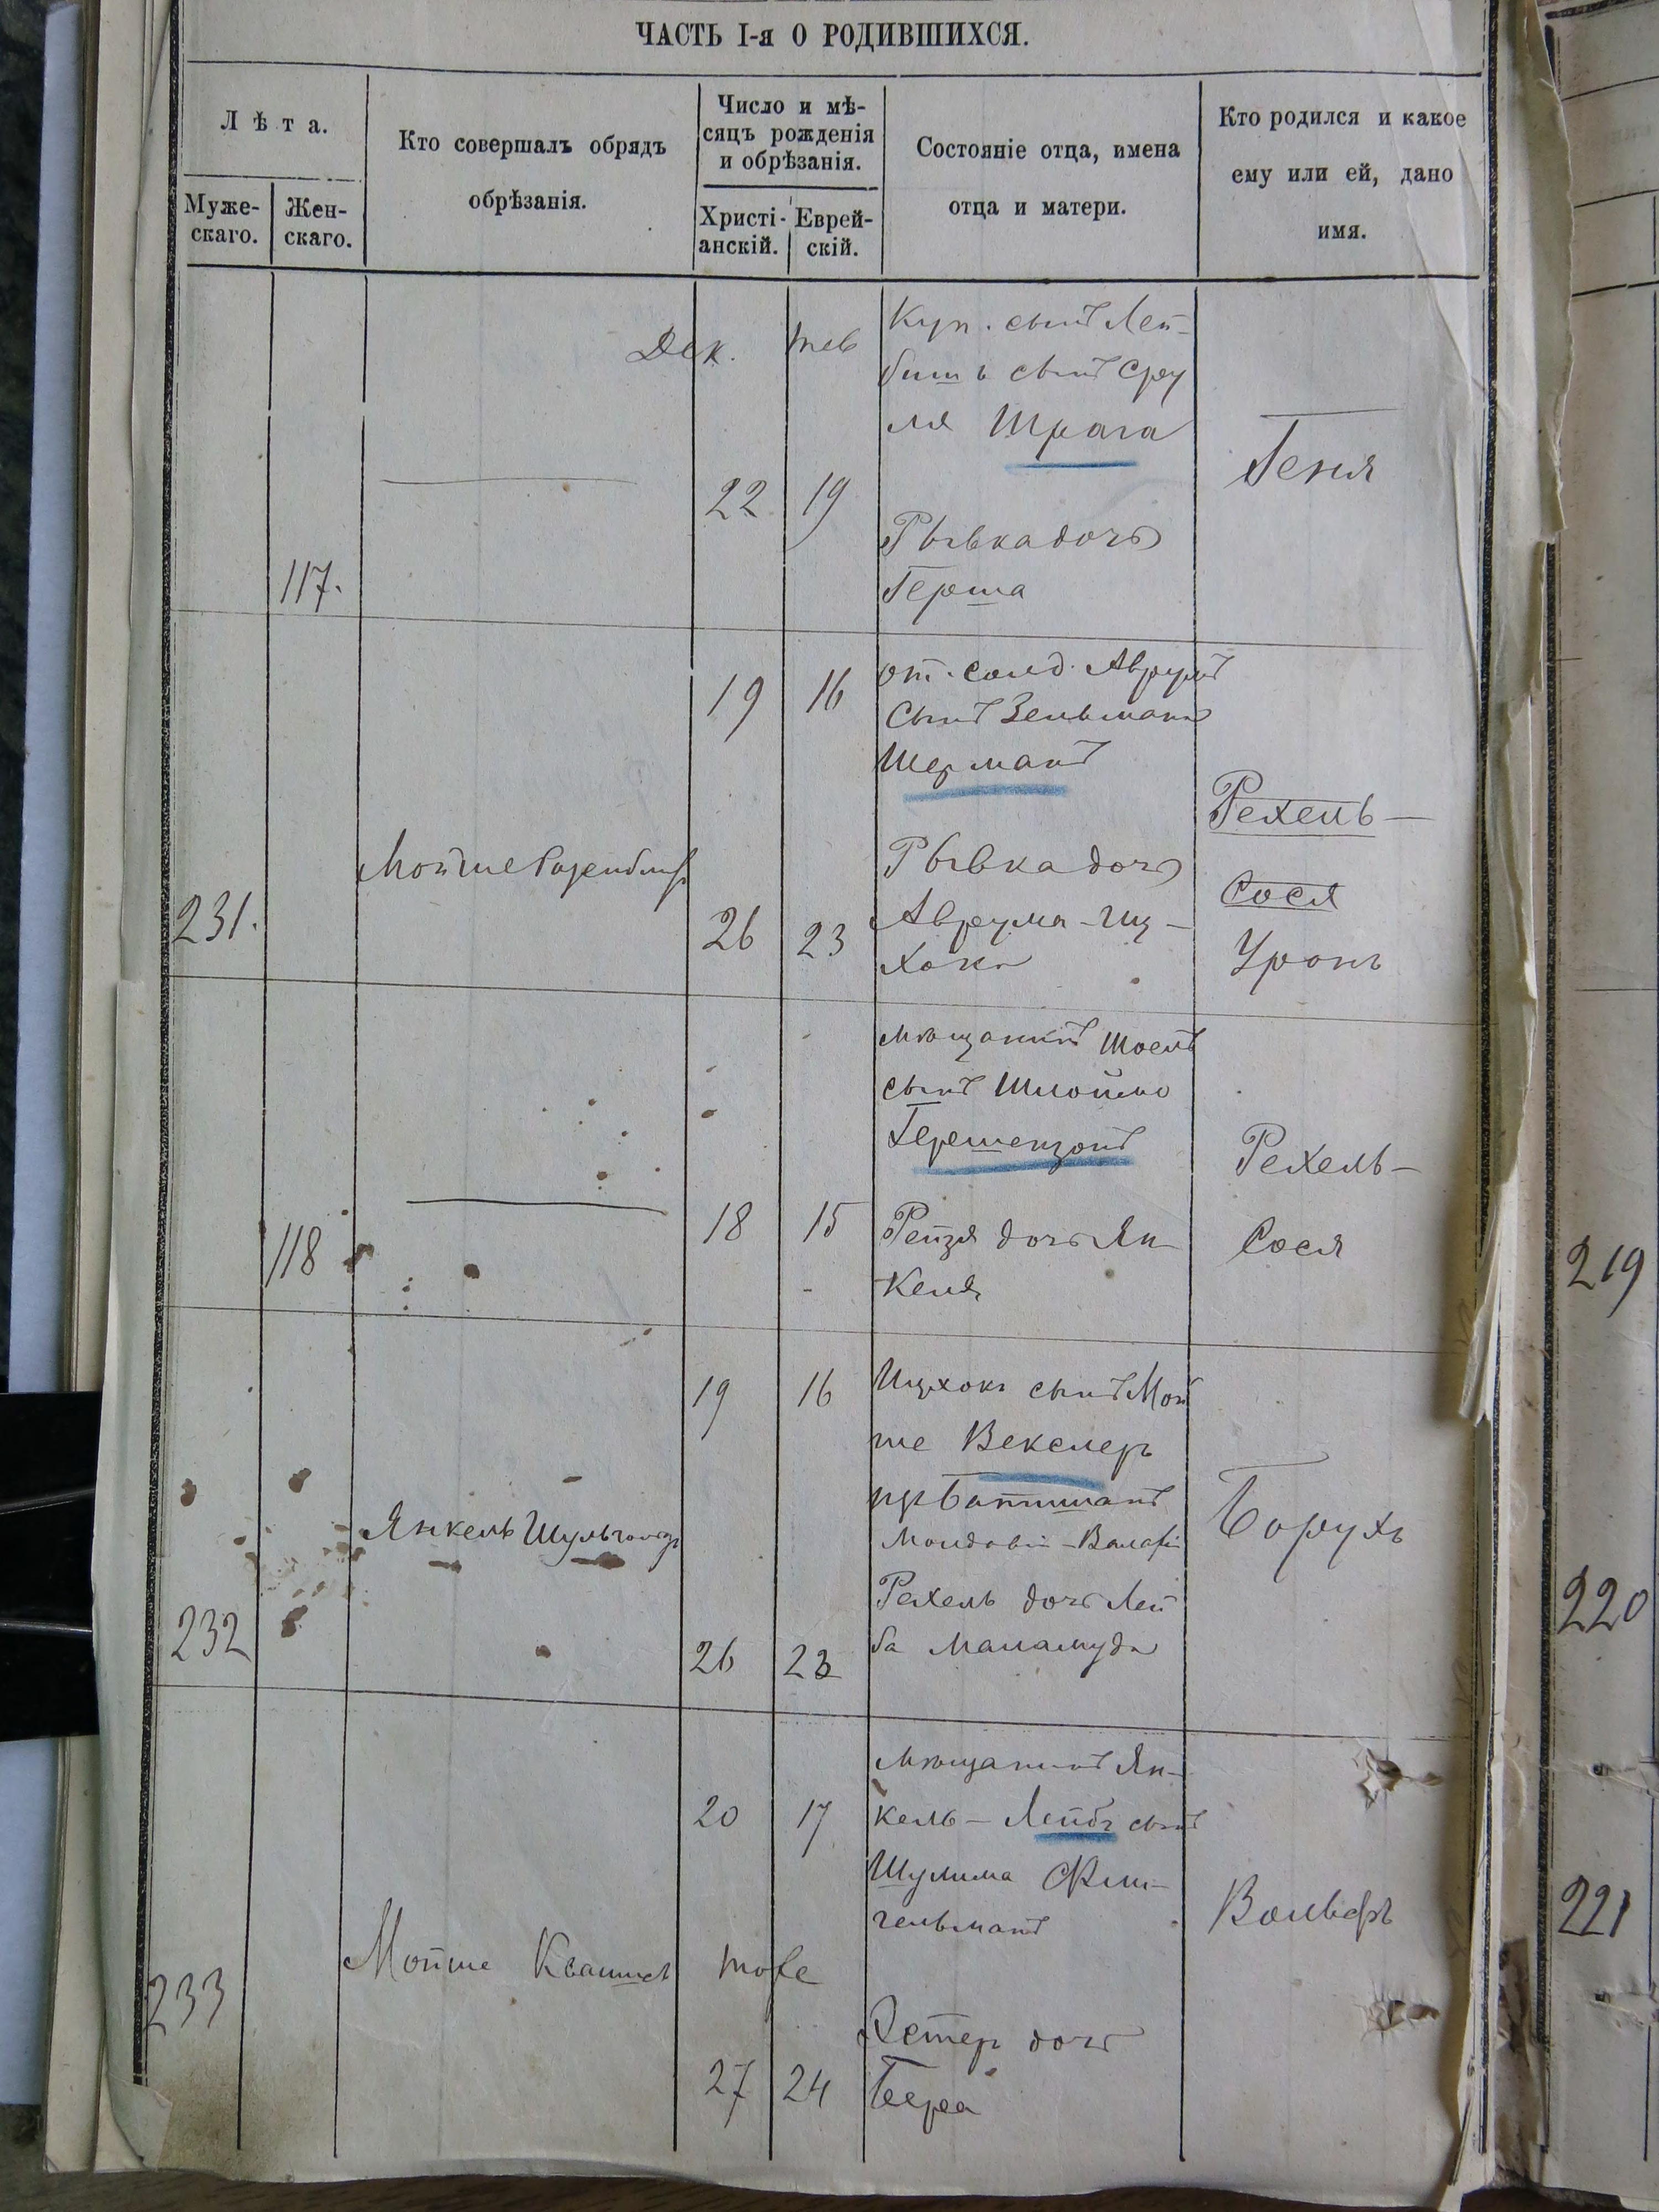 ЧАСТЬ I-я О РОДИВШИХСЯ.
Лѣта.
Муже-
скаго.
Жен-
скаго.
Кто совершалъ обрядъ
обрѣзанія.
Число и мѣ-
сяцъ рожденія
и обрѣзанія.
Христі-
анскій.
Еврей-
скій.
Состояніе отца, имена
отца и матери.
Кто родился и какое
ему или ей, дано
имя.
117.
Дек.
тев
22
19
Куп. сынъ Лей-
бишъ сынъ Сру
ля Шрага
Рывка дочь
Герша
Геня
231.
Мойше Розенблит
19
16
26
23
от. солд. Аврумъ
сынъ Зельмана
Шерманъ
Рывка дочь
Аврума-Иц-
хока
Рехель-
Сося
Уронъ
118
18
15
мѣщанинъ Шоелъ
сынъ Шлоймо
Герешензонъ
Рейзя дочь Ян-
келя
Рехель-
Сося
232
Янкель
19
16
26
23
Ицхокъ сынъ Мой
ше Векслеръ
Молдавіи-Валахіи
Рехель дочь Лей
ба
Борухъ
233
Мойше
20
17
тоже
27
24
мѣщанинъ Ян-
кель-Лейбъ сынъ
Шулима
гельманъ
Эстеръ дочь
Бера
Вольфъ
219
220
221